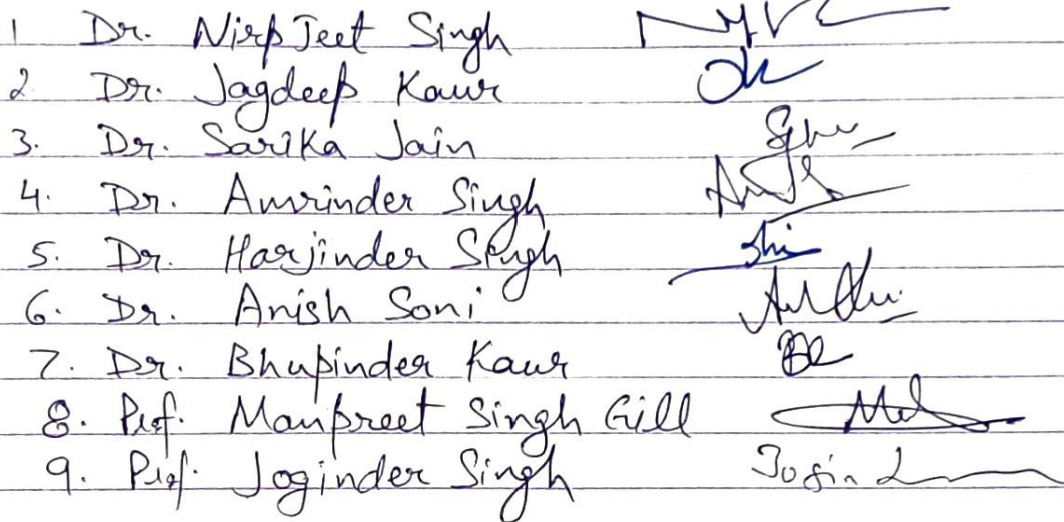 1 Dr. NirpJeet Singh
2 Dr. Jagdeep Kaur
3. Dr. Sarika Jain
4. Dr. Amrinder Singh
5. Dr. Harjinder Singh
6. Dr. Anish Soni
7. Dr. Bhupinder Kaur
8. Prof. Manpreet Singh Gill
9. Prof. Joginder Singh